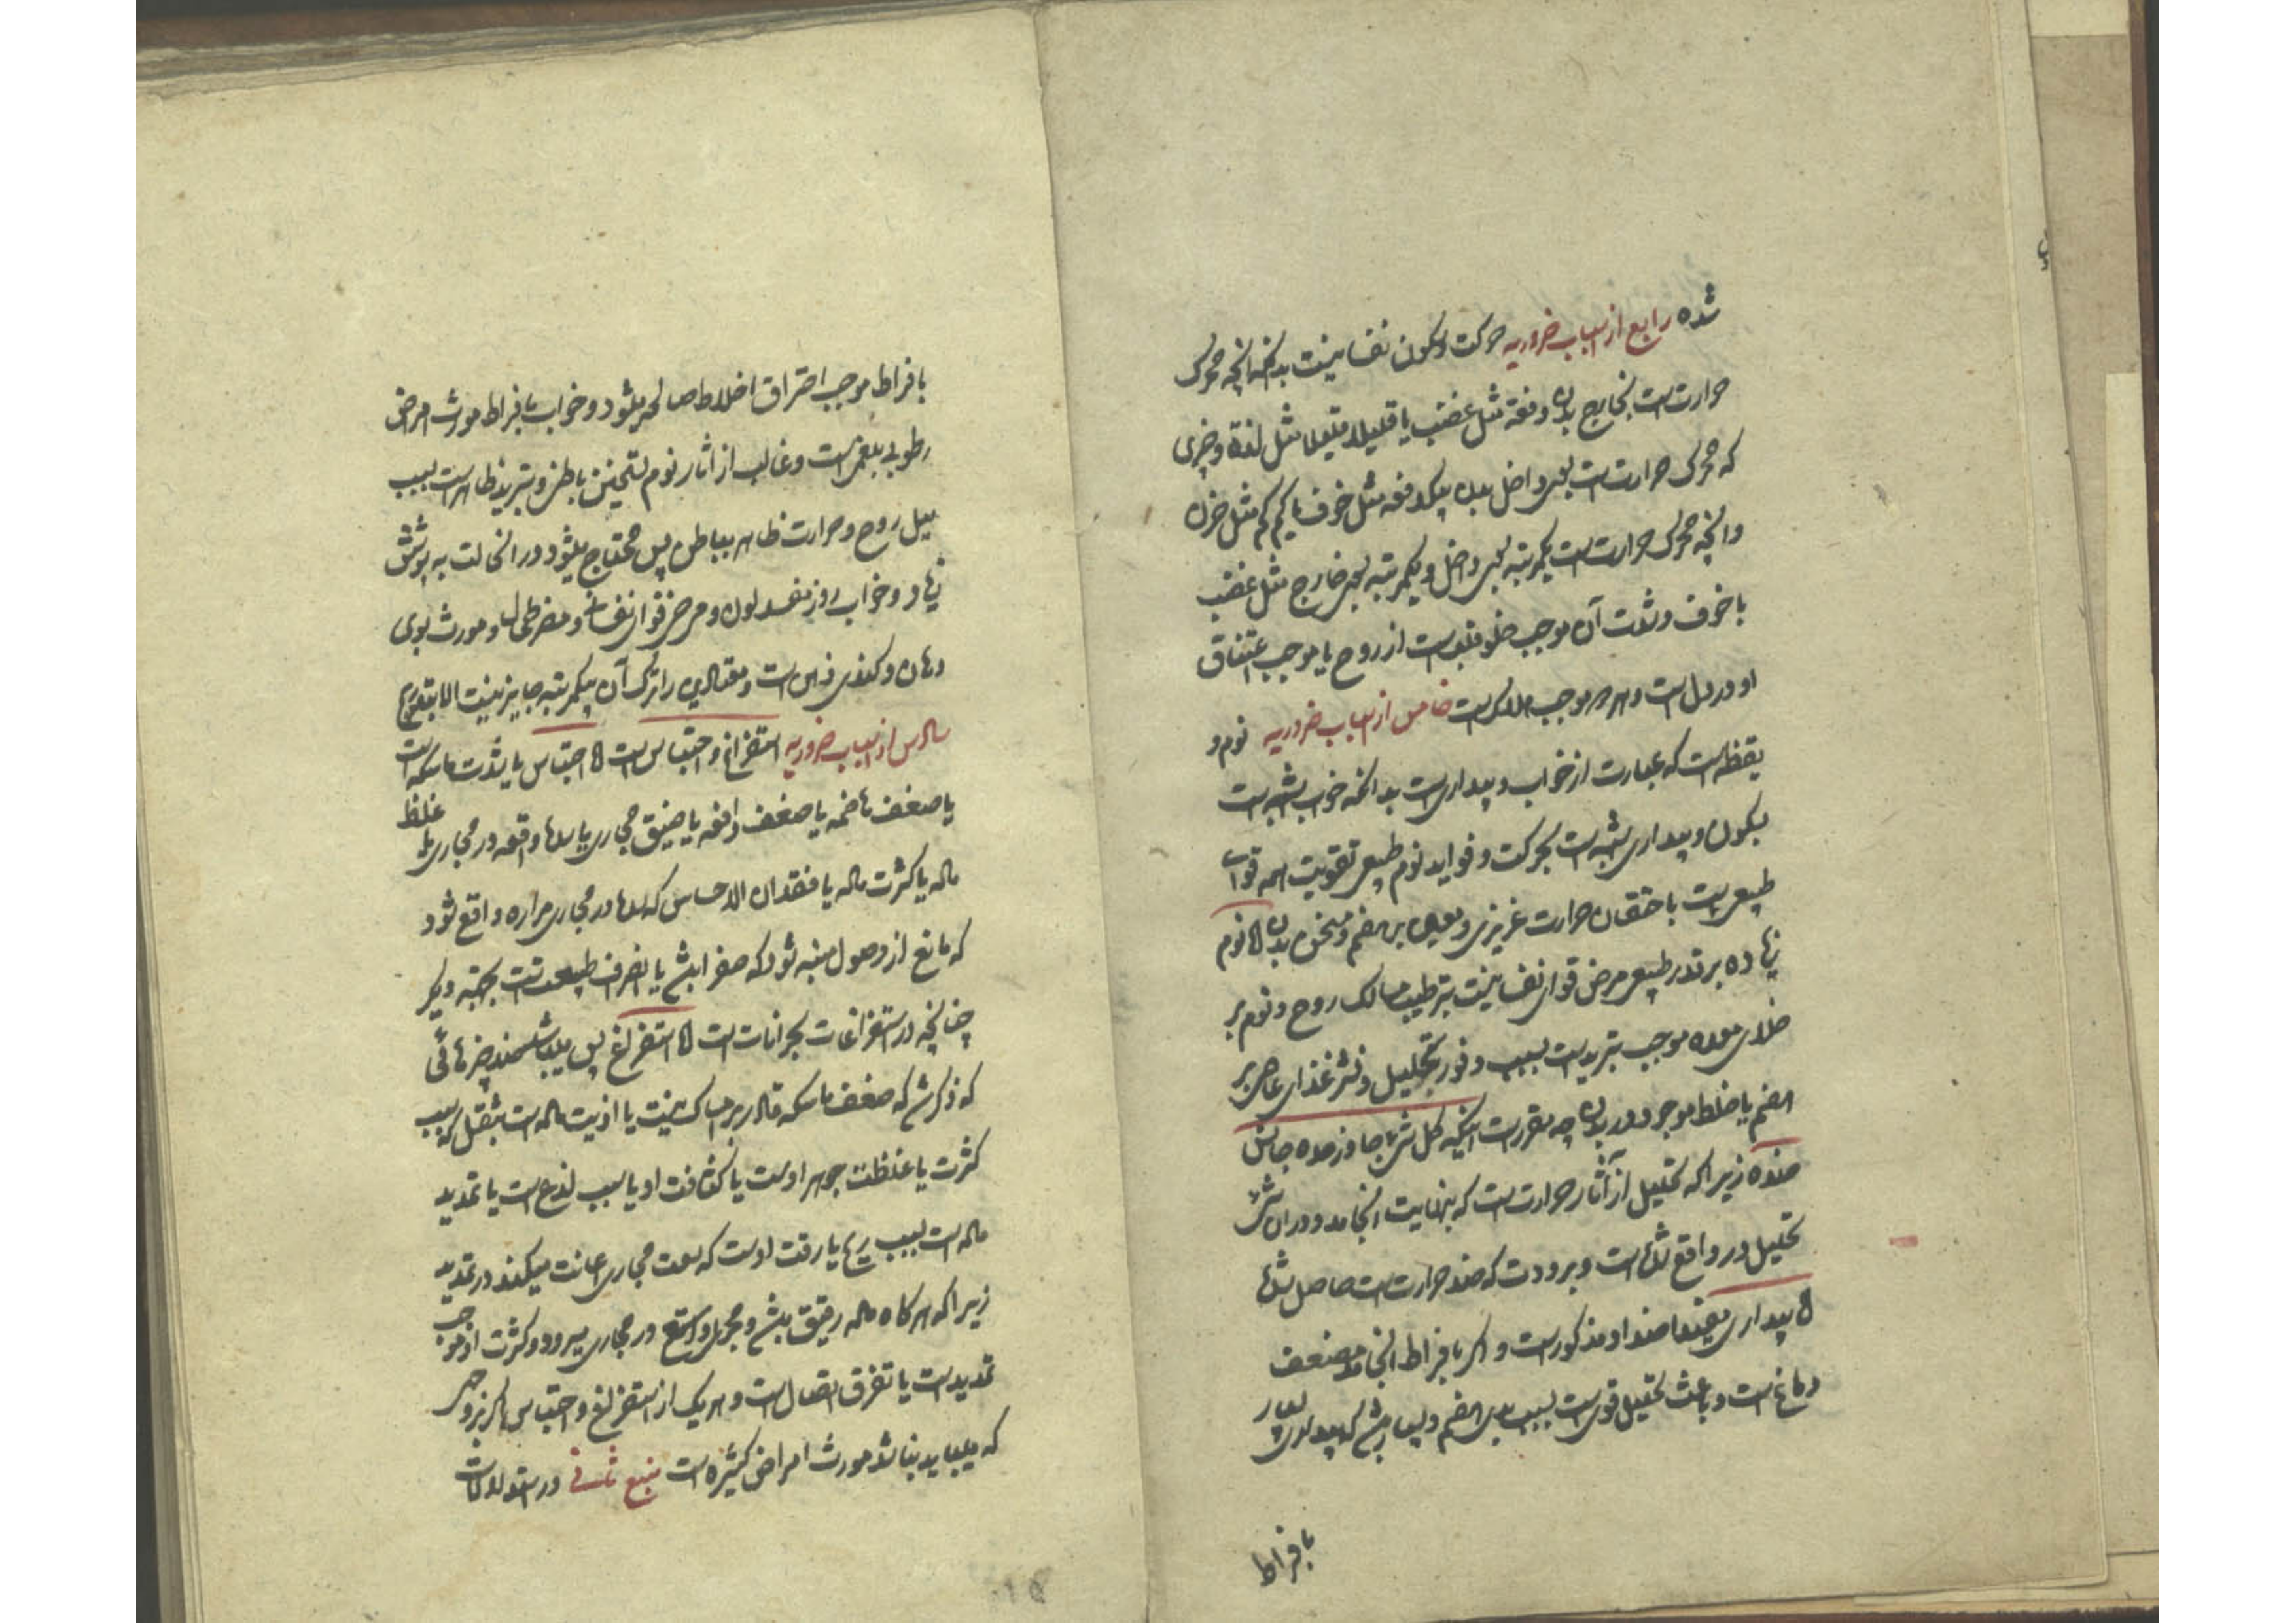 شده رابع از اسباب ضروریه حرکت و سکون نفسانیست بدانکه آنچه محرک
حرارتست بخارج بدن دفعة مثل غضب یا قلیلا قلیلا مثل لذة و خزی
که محرک حرارتست بسوی داخل بدن یکدفعه مثل خوف یا کم کم مثل حزن
و آنچه محرک حرارتست یکمرتبه بسوی داخل و یکمرتبه بسوی خارج مثل غضب
با خوف و شدت آن موجب خلو قلبست از روح یا موجب اختناق
او در دلست و هر دو موجب هلاکست خامس از اسباب ضروریه نوم و
یقظه است که عبارت از خواب و بیداریست بدانکه خواب اشبه است
بسکون و بیداری اشبه است بحرکت و فواید نوم طبیعی تقویت همه قوای
طبیعیست باحتقان حرارت غریزی و معین بر هضم و مسخن بدن اما نوم
زیاده بر قدر طبیعی مرخی قوای نفسانیست بترطیب مسالک روح و نوم بر
خلای معده موجب تبریدست بسبب وفور تحلیل و نشر غذای عاصی بر
هضم یا خلط موجود در بدن چه مقررست اینکه کل شی جاوز حده جانس
ضده زیرا که تحلیل از آثار حرارتست که بنهایت انجامد و در آن شی
تحلیل در واقع شده است و برودت که ضد حرارتست حاصل شده
اما بیداری یقینا ضد او مذکورست و اگر بافراط انجامد مضعف
دماغ است و باعث تحلیل قویست بسبب بدی هضم و بسیار باشد که بیداری بسیار
بافراط
بافراط موجب احتراق اخلاط صالحه میشود و خواب بافراط مورث امراض
رطوبی بلغمی است و غالب از آثار نوم تسخین باطن و تبرید ظاهر است بسبب
میل روح و حرارت ظاهر بباطن پس محتاج میشود در انحالت به پوشش
زیاد و خواب روز مفسد لون و مرخی قوای نفسانی و مضر طحال و مورث بوی
دهان و کندی ذهن است و معتادین را ترک آن یکمرتبه جایز نیست الا بتدریج
سادس از اسباب ضروریه استفراغ و احتباس است اما احتباس یا بشدت ماسکه است
یا ضعف هاضمه یا ضعف دافعه یا ضیق مجاری یا سدها واقعه در مجاری یا غلظ
ماده یا کثرت ماده یا فقدان الاحساس که سدها در مجاری مراره واقع شود
که مانع از وصول منبه شود که صفرا باشد یا انصراف طبیعت است بجهته دیگر
چنانچه در استفراغات بحرانات است اما استفراغ پس میباشد ضد چیزهائی
که ذکر شد که ضعف ماسکه قادر بر امساک نیست یا اذیت ماده است بثقل که بسبب
کثرت یا غلظت جوهر اوست یا کثافت او یا بسبب لذع است یا تمدید
ماده است بسبب ریح یا رقت اوست که سعت مجاری اعانت میکند در تمدید
زیرا که هر کاه ماده رقیق باشد و مجری واسع در مجاری میرود و کثرت او موجب
تمدیدست یا تفرق اتصال است و هریک از استفراغ و احتباس اگر بر وجهی
که میباید نباشد مورث امراض کثیره است منبع ثانی در استدلالات